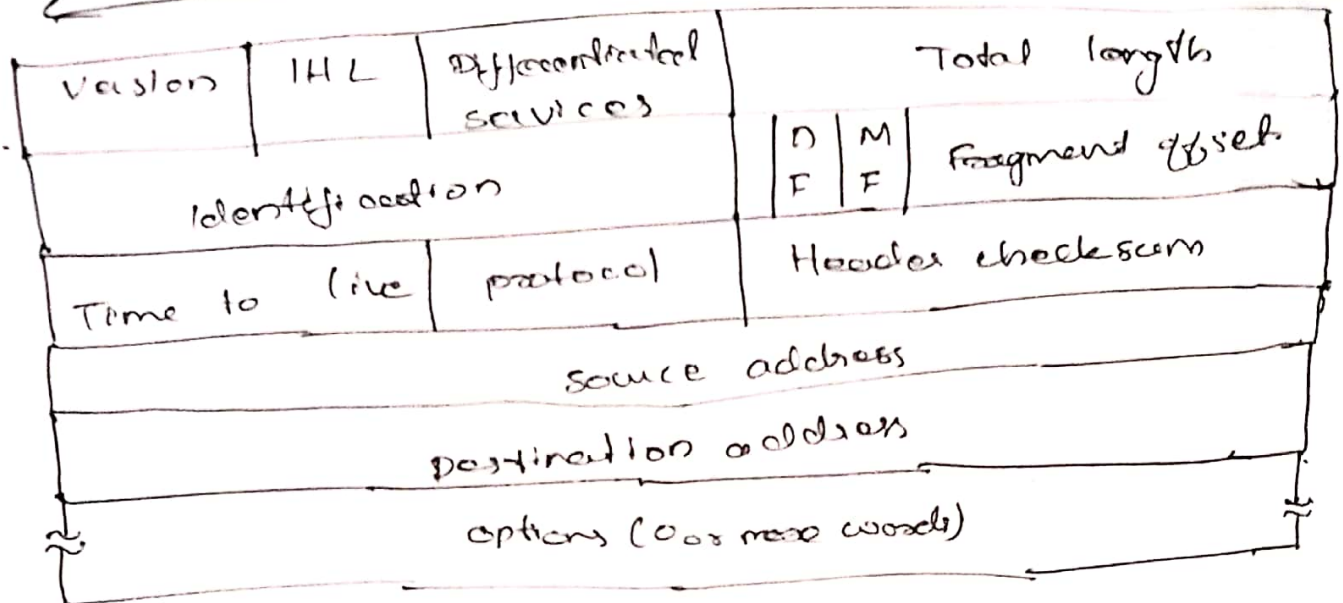 Version IHL Differentiated Total length
services
Identification D M Fragment offset
F F
Time to live protocol Header checksum
source address
Destination address
options (0 or more words)